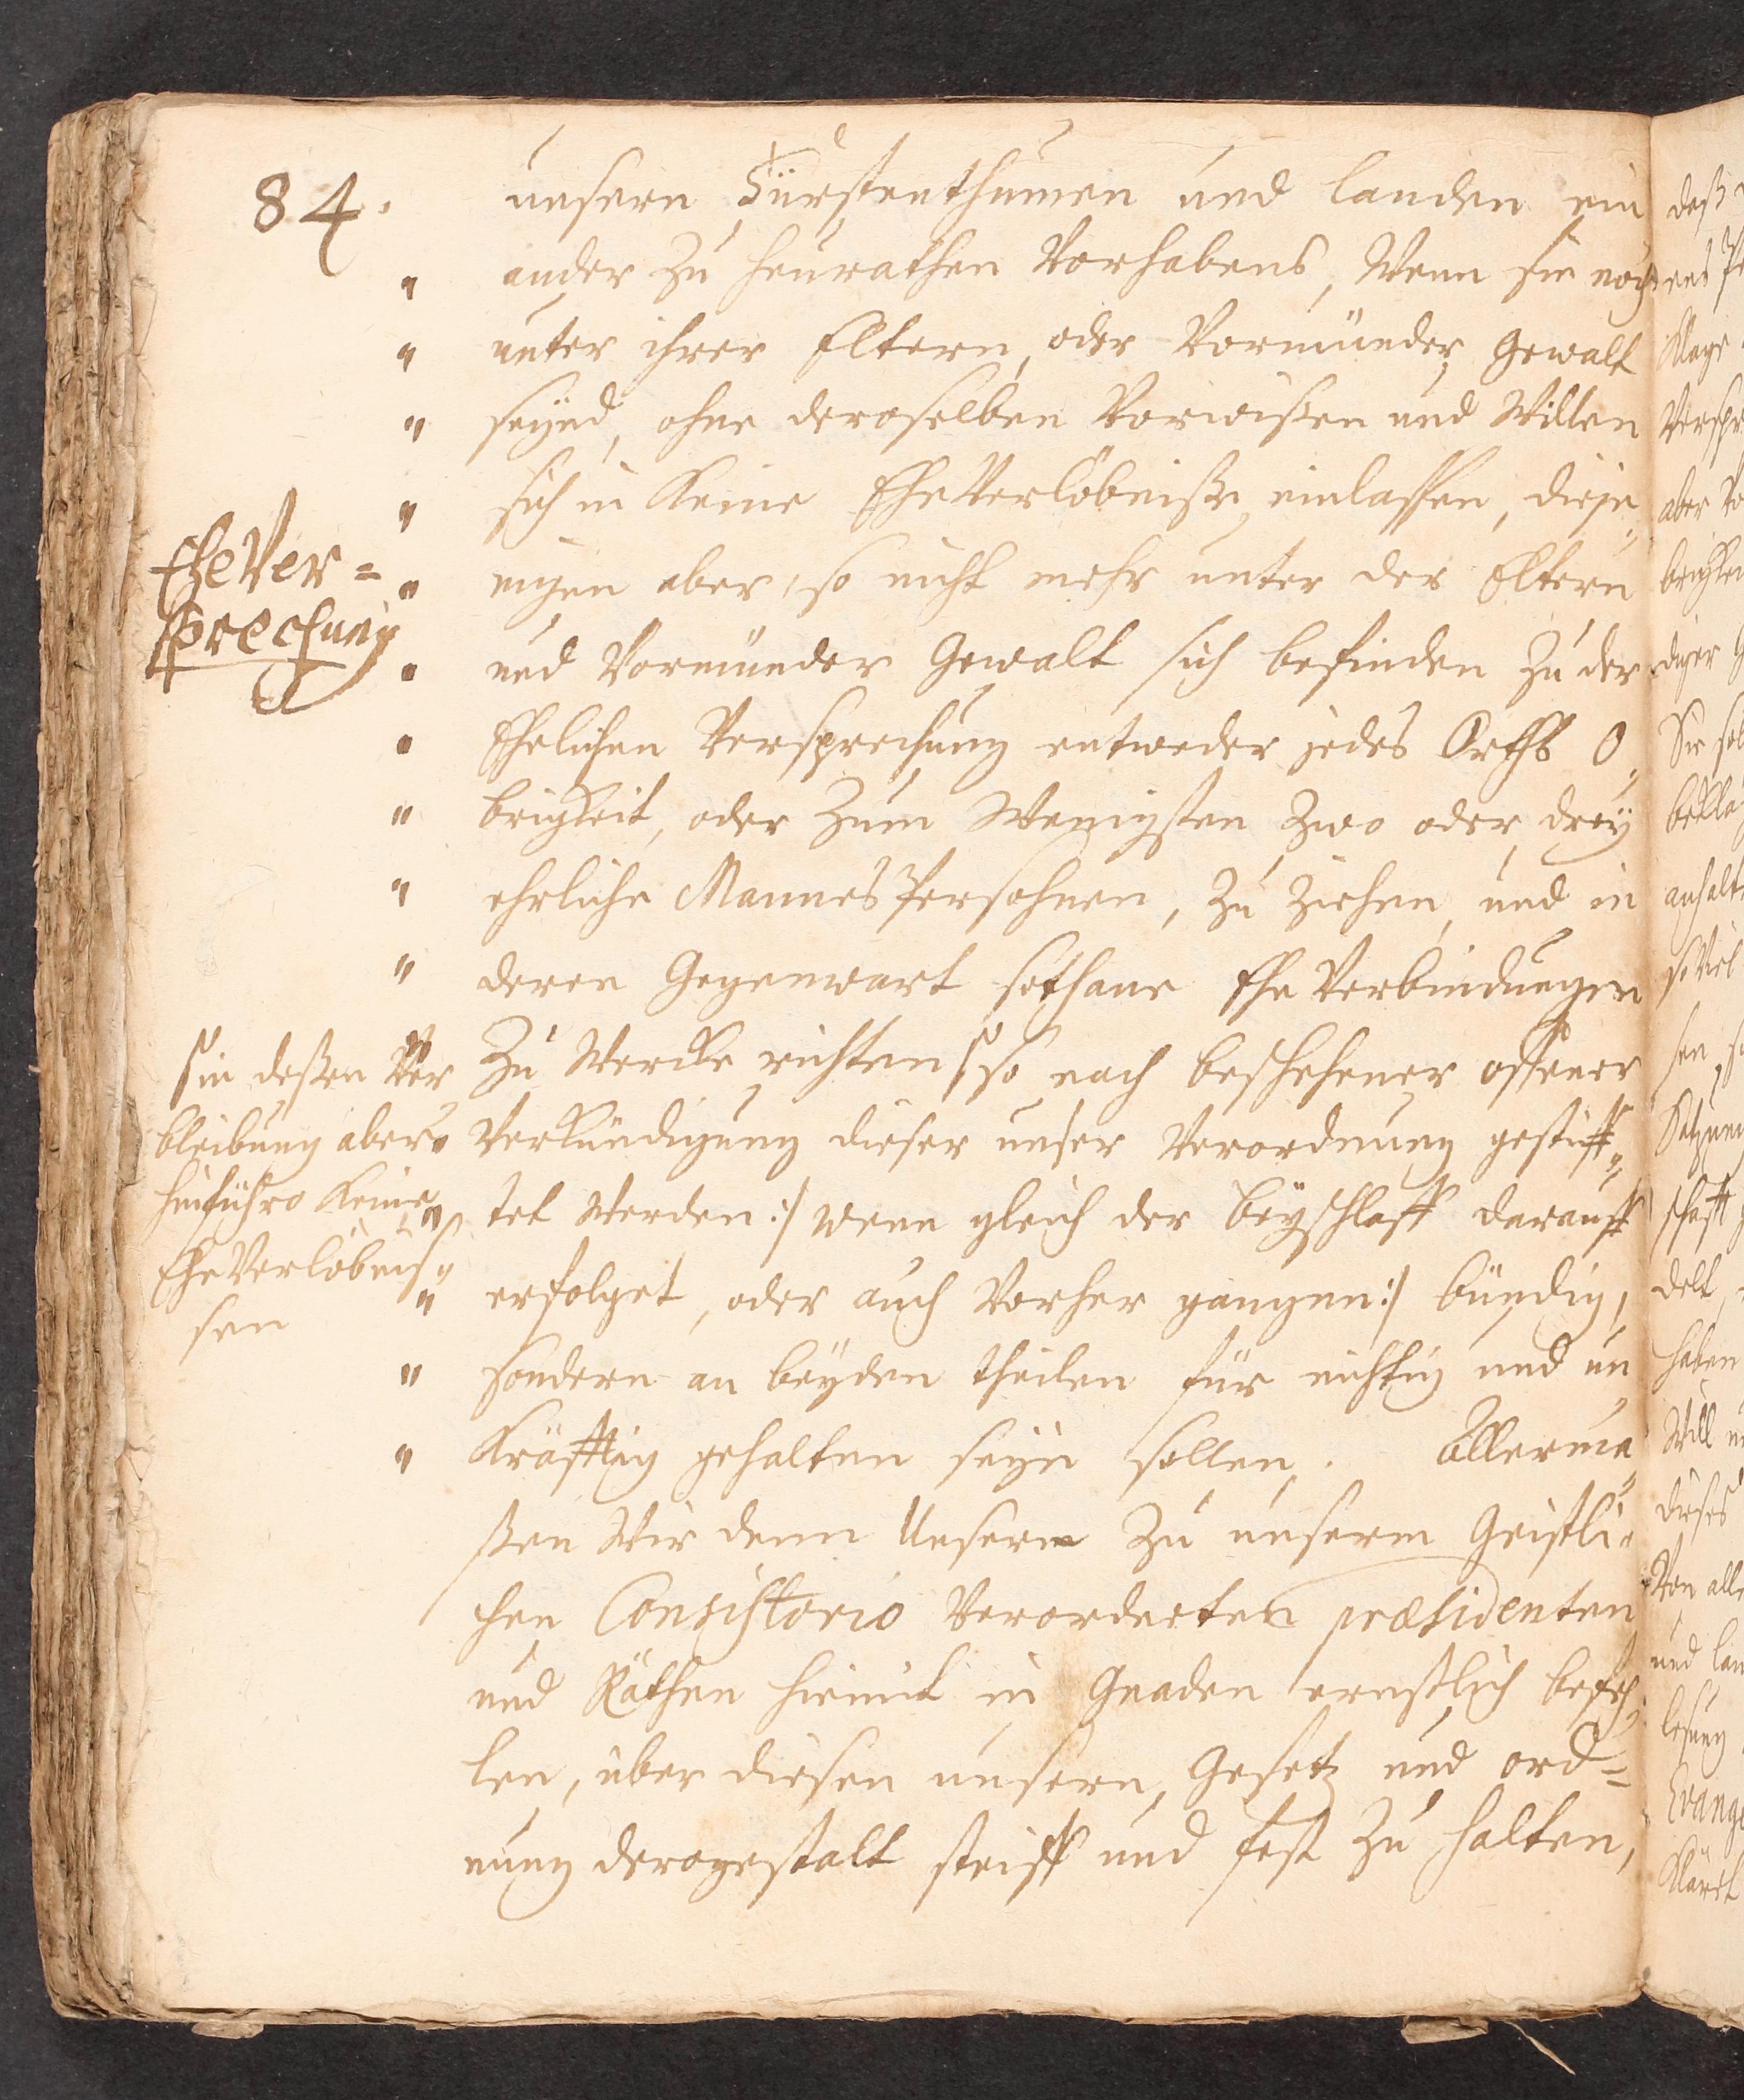 84.
unsern Fürstenthumen und landen ein
" ander zu heurathen Vorhabens, Wenn sie noch
" unter ihrer Eltern, oder Vormünder, Gewalt
" seynd, ohne deroselben Vorwißen und Willen
" sich in Keine EheVerlöbniße einlassen, dieje„
" nigen aber, so nicht mehr unter der Eltern
" und Vormünder Gewalt sich befinden zu der
" Ehelichen Versprechung entweder jedes Orths O„
" brigkeit, oder Zum Wenigsten Zwo oder drey
" ehrliche MannesPersohnen, Zu Ziehen, und in
" deren Gegenwart sothane Ehe Verbindungen
" Zu Wercke richten so nach beschehener offener
" Verkündigung dieser unser Verordnung gestiff„
" tet Werden :/ wenn gleich der beyschlaff darauff
" erfolget, oder auch Vorher gangen :/ bündig,
" sondern an beyden theilen für nichtig und un
" Kräfftig gehalten seyn sollen. Allerma„
ßen Wir denn Unsern Zu unserm Geistli„
chen Consistorio Verordneten præsidenten
und Räthen hiemit in Gnaden ernstlich befeh„
len, über diesen unsern, Gesetz und ord=
nung derogestalt steiff und fest Zu halten,
EheVer=
sprechung
in deßen Ver
bleibung aber
hinführo Keine
EheVerlöbnis„
sen
deß
Klage
aber
diser
Sie
soViel
schafft
delt,
haben
Will
dieses
Von
und
Evange